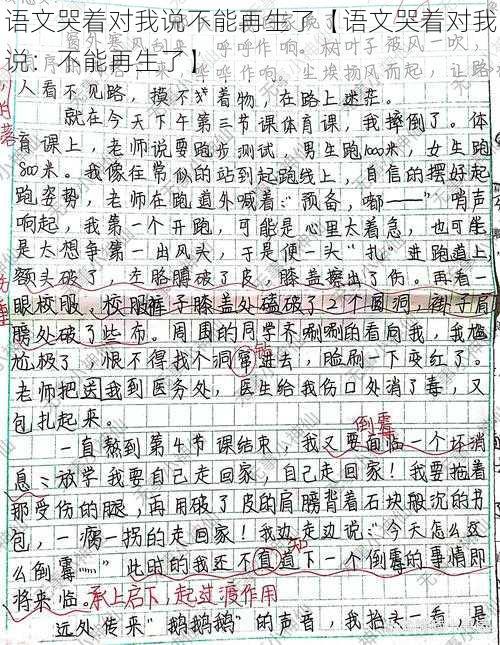 语文哭着对我说不能再生了【语文哭着对我
说：不能再生了】
人看不见路，摸不着物，在路上迷茫。
就在今天下午第三节课体育课，我摔倒了。体
育课上，老师说要跑步测试，男生跑1000米，女生跑
800米。我像在常似的站到起跑线上，自信的摆好起
跑姿势，老师在跑道外喊着：“预备，嘟——”哨声
响起，我第一个开跑，可能是心里太着急，也可能
是太想争第一出风头，于是便一头“扎”进跑道上
额头破了，左胳膊破了皮，膝盖擦出了伤。再看一
眼校服、校服裤子膝盖处磕破了2个圆洞，褂子肩
膀处破了些布。周围的同学齐唰唰的看向我，我尴
尬极了，恨不得找个洞进去，脸刷一下变红了。
老师把送我到医务处，医生给我伤口处消了毒，又
包扎起来。
倒霉
一直熬到第4节课结束，我又要面临一个坏消
息：放学我要自己走回家，自己走回家！我要拖着
那受伤的腿，再用破了皮的肩膀背着石块般沉的书
包，一瘸一拐的走回家！我边走边说：“今天怎么这
么倒霉……”此时的我还不直道下一个倒霉的事情即
知
将来临。承上启下，起过渡作用
远处传来“鹅鹅鹅”的声音，我抬头一看，是